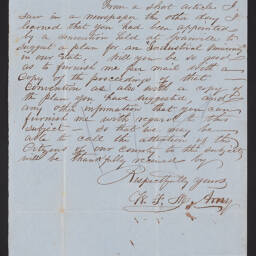 From a short article I
saw in a newspaper the other day I
learned that you had been appointed
by a convention held at Yorkville to
suggest a plan for an Industrial University
in our State. Will you be so good
as to furnish me thro mail with a
Copy of the proceedings of that
Convention as also with a copy of
the plan you have suggested, and
any other information that you can
furnish me with regard to this
subject - so that we may be
able to call the attention of the
Citizens of our county to the subject,
will be thankfully received by
Respectfully yours